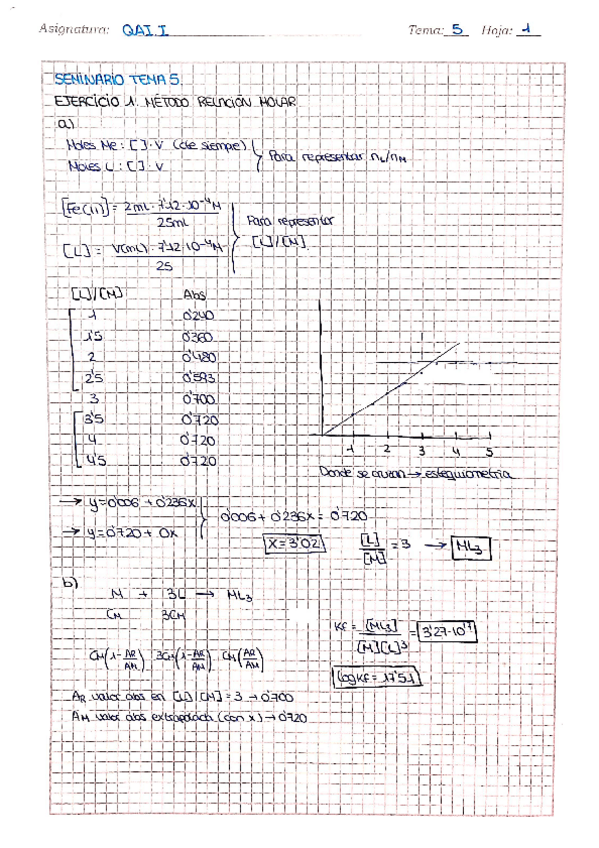 Asignatura: QAI I Tema: 5 Hoja: 1
SEMINARIO TEMA 5.
EJERCICIO 1. MÉTODO RELACIÓN MOLAR
a)
Moles Me: [ ]·V (cte siempre)
Moles L: [ ]·V
Para representar nL/nM
[Fe(II)] = 2mL · 7'12·10⁻⁴M / 25mL
[L] = V(mL) · 7'12·10⁻⁴M / 25
Para representar
[L]/[M]
[L]/[M] Abs
1 0'240
1'5 0'360
2 0'480
2'5 0'593
3 0'700
3'5 0'720
4 0'720
4'5 0'720
1 2 3 4 5
Donde se cruzan → estequiometría
→ y=0'006 + 0'236x
→ y=0'720 + 0x
0'006 + 0'236x = 0'720
x = 3'02
[L]/[M] = 3 → ML₃
b)
M + 3L → ML₃
CM 3CM
CM(1-AR/AM) 3CM(1-AR/AM) CM(AR/AM)
Kf = [ML₃]/[M][L]³ = 3'27·10¹⁷
log Kf = 17'51
AR valor abs en [L]/[M] = 3 → 0'700
AM valor abs (con x) → 0'720